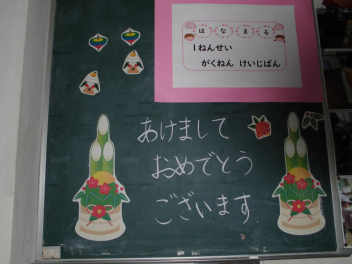 はなまる
1ねんせい
がくねん けいじばん
あけまして
おめでとう
ございます